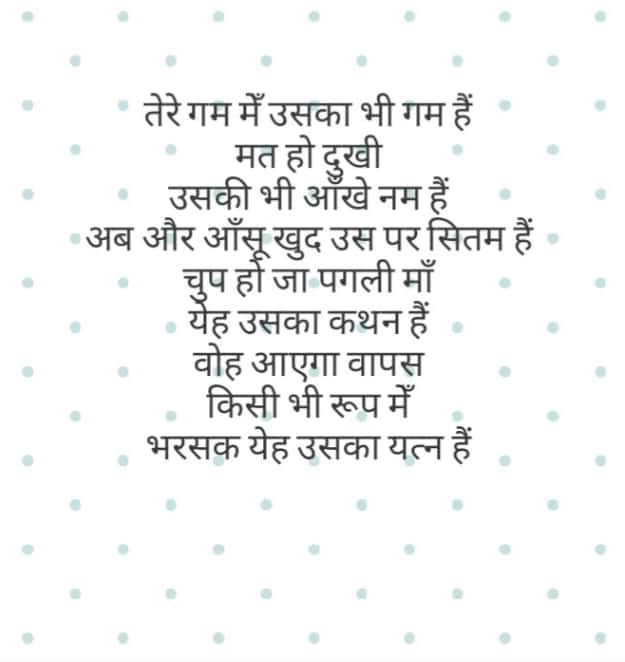 तेरे गम मेँ उसका भी गम हैं
मत हो दुखी
उसकी भी आँखे नम हैं
अब और आँसू खुद उस पर सितम हैं
चुप हो जा पगली माँ
येह उसका कथन हैं
वोह आएगा वापस
किसी भी रूप मेँ
भरसक येह उसका यत्न हैं